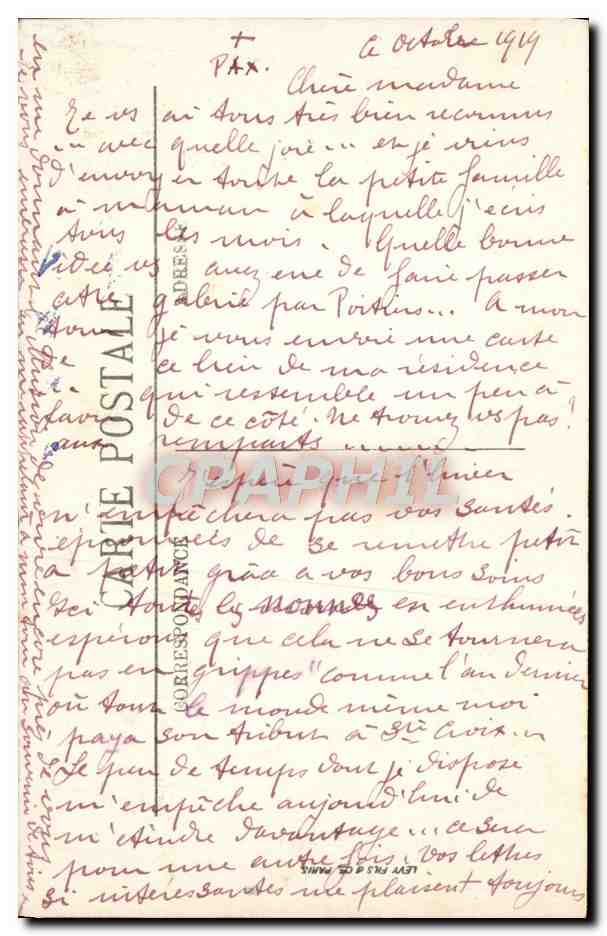 +
PAX.
Ce Octobre 1919
Chère madame
Je vs ai tous très bien reconnus
... avec quelle joie... et je viens
d'envoyer toute la petite famille
à maman à laquelle j'écris
tous les mois. Quelle bonne
idée vs avez eue de faire passer
cette galerie par Poitiers... A mon
tour je vous envoie une carte
de ce lieu de ma résidence
qui ressemble un peu à
de ce côté. Ne trouvez vs pas?
aux remparts
J'espère que l'hiver
n'empêchera pas vos santés
éprouvées de se remettre petit
à petit grâce à vos bons soins
Ici toutes les nonnes en enrhumées
espérons que cela ne se tournera
pas en "grippes" comme l'an dernier
où tout le monde même moi
paya son tribut à Ste Croix...
Le peu de temps dont je dispose
m'empêche aujourd'hui de
m'étendre davantage... ce sera
pour une autre fois. Vos lettres
si intéressantes me plaisent toujours
en me donnant de vivre encore près de vous
mon tour du souvenir de
CARTE POSTALE
CORRESPONDANCE
ADRESSE
LEVY FILS & Cie PARIS
CPAPHIL